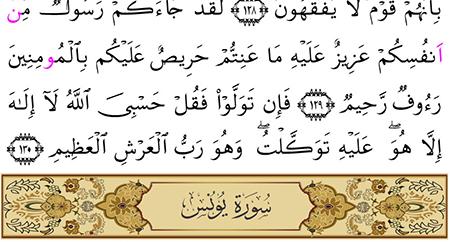 بِأَنَّهُمْ قَوْمٌ لَا يَفْقَهُونَ ١٢٨ لَقَدْ جَآءَكُمْ رَسُولٌ مِّنْ
أَنفُسِكُمْ عَزِيزٌ عَلَيْهِ مَا عَنِتُّمْ حَرِيصٌ عَلَيْكُم بِالْمُومِنِينَ
رَءُوفٌ رَّحِيمٌ ١٢٩ فَإِن تَوَلَّوْاْ فَقُلْ حَسْبِيَ اَللَّهُ لَآ إِلَٰهَ
إِلَّا هُوَۖ عَلَيْهِ تَوَكَّلْتُۖ وَهُوَ رَبُّ اُلْعَرْشِ اِلْعَظِيمِ ١٣٠
سُورَةُ يُونُسَ